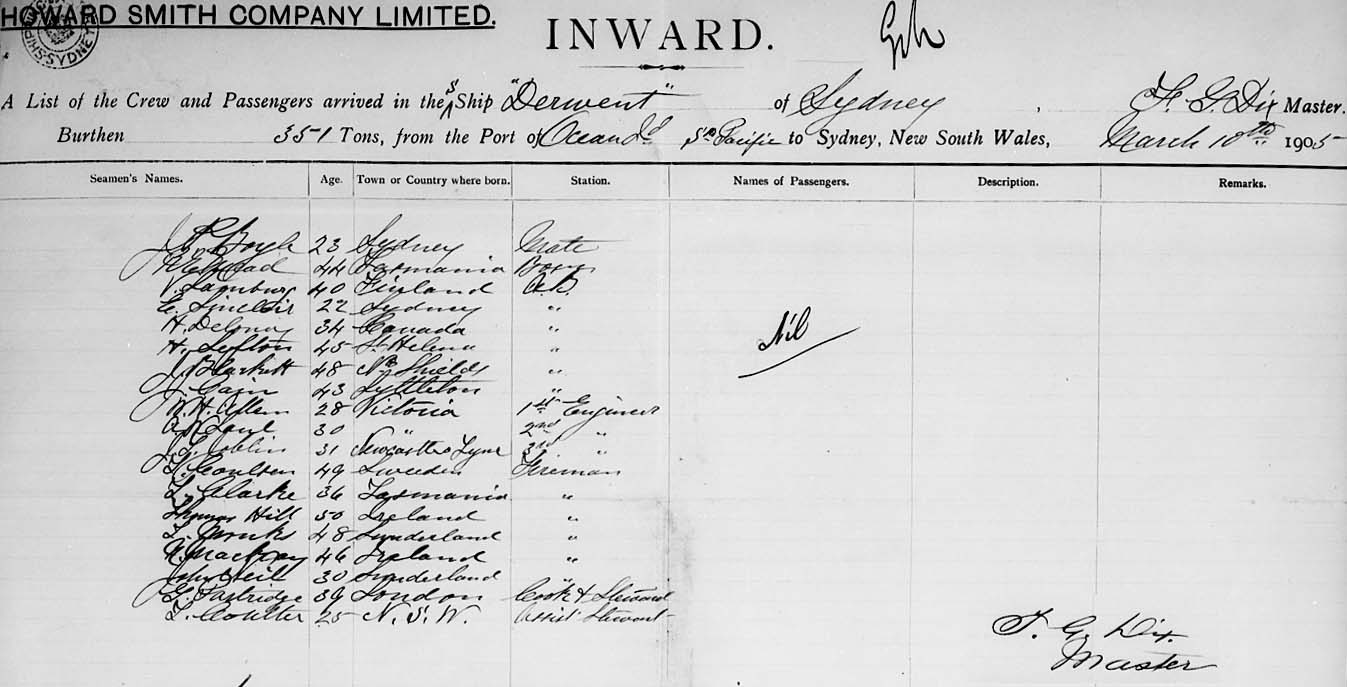 HOWARD SMITH COMPANY LIMITED.
SHIP SYDNEY
INWARD.
A List of the Crew and Passengers arrived in the S Ship "Derwent" of Sydney, F. G. Dix Master.
Burthen 351 Tons, from the Port of Ocean Id Sth Pacific to Sydney, New South Wales, March 10th 1905
Seamen's Names. Age. Town or Country where born. Station. Names of Passengers. Description. Remarks.
Boyle 23 Sydney Mate
44 Tasmania Bosn
V. 40 Finland A.B.
E. Sinclair 22 Sydney "
H. Delaney 34 Canada "
H. Sefton 45 St Helena "
J. Blackett 48 Nth Shields "
J. Gain 43 Lyttleton "
W. H. Allen 28 Victoria 1st Engineer
30 " 2nd "
31 Newcastle o Tyne 3rd "
Coulsen 49 Sweden Fireman
Clarke 36 Tasmania "
Thomas Hill 50 Ireland "
48 Sunderland "
46 Ireland "
John Neil 30 Sunderland "
G. Partridge 39 London Cook & Steward
Coulter 25 N. S. W. Assist Steward
Nil
F. G. Dix.
Master